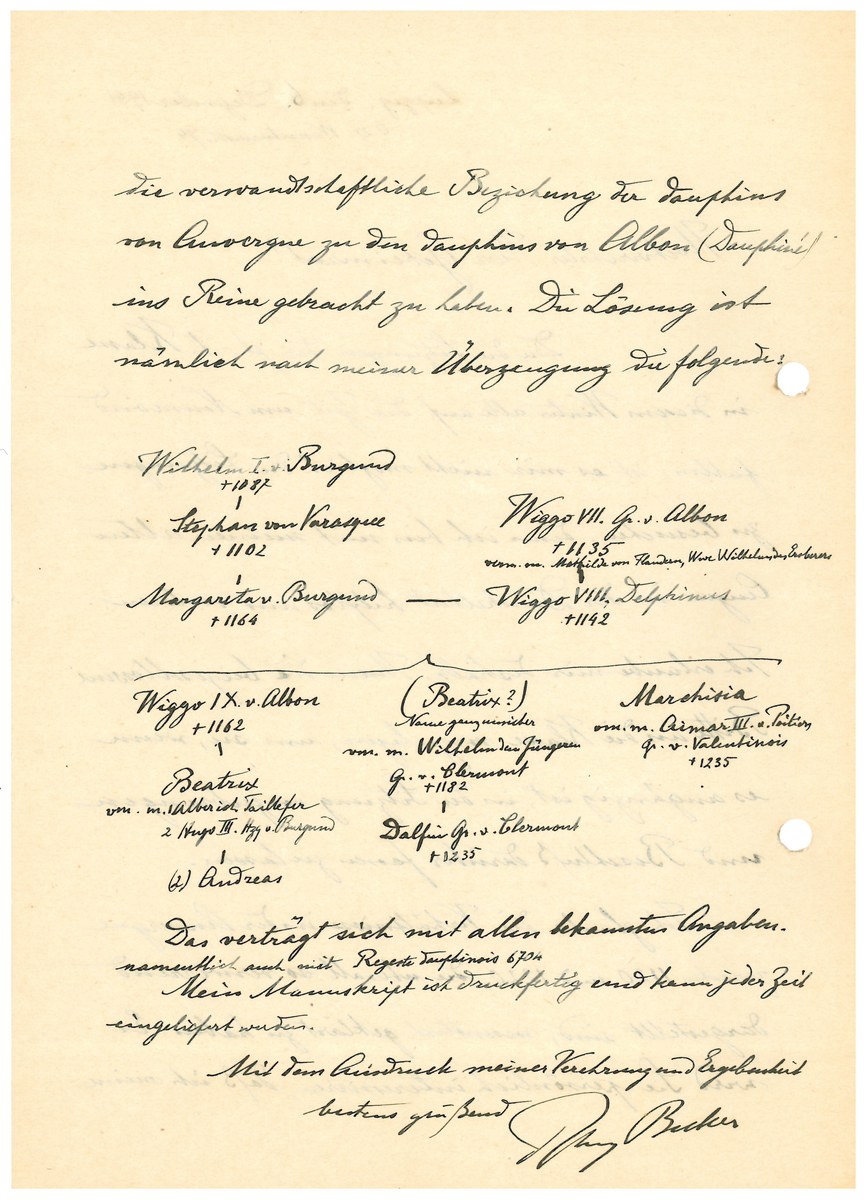 die verwandtschaftliche Beziehung der dauphins
von Auvergne zu den dauphins von Albon (Dauphiné)
ins Reine gebracht zu haben. Die Lösung ist
nämlich nach meiner Überzeugung die folgende:
Wilhelm I. v. Burgund
+1087
Stephan von Varasque
+1102
Margareta v. Burgund —
+1164
Wiggo VII. Gr. v. Albon
+1135
verm. m. Mathilde von Flandern, Wwe Wilhelms des Eroberers
Wiggo VIII. Delphinus
+1142
Wiggo IX. v. Albon
+1162
Beatrix
vm. m. 1 Alberich Taillefer
2 Hugo III. Hzg v. Burgund
(2) Andreas
(Beatrix?)
Name ganz unsicher
vm. m. Wilhelm den Jüngeren
Gr. v. Clermont
+1182
Dalfin Gr. v. Clermont
+1235
Marchisia
vm. m. Aimar III. v. Poitiers
Gr. v. Valentinois
+1235
Das verträgt sich mit allen bekannten Angaben.
namentlich auch mit Regeste dauphinois 6704
Mein Manuskript ist druckfertig und kann jeder Zeit
eingeliefert werden.
Mit dem Ausdruck meiner Verehrung und Ergebenheit
bestens grüßend
Becker